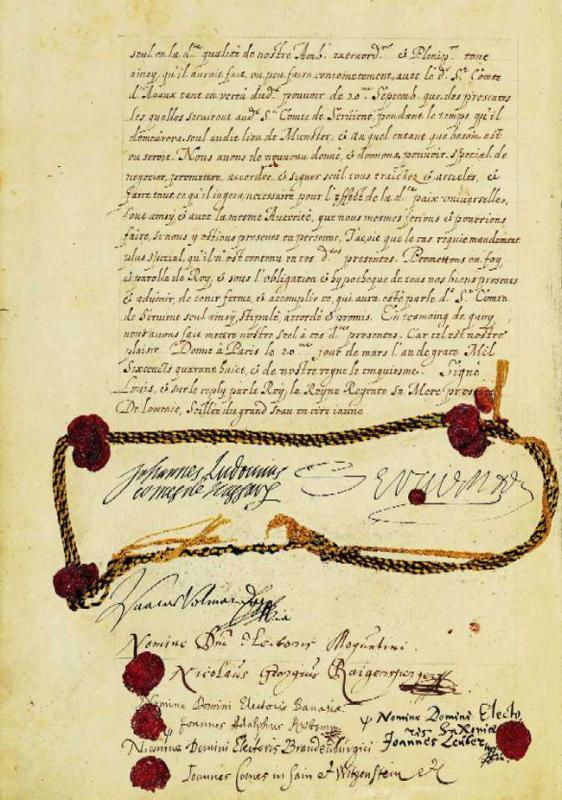 seul en la d.te qualité de nostre Amb.r extraord.re & Plenip.re tout
ainsy, qu'il auroit fait, ou peu faire conjointement, avec le d.t S.r Comte
d'Avaux tant en vertu dud.t pouvoir de 20.me Septemb. que des presentes
les quelles serviront aud.t S.r Comte de Servient, pendant le temps qu'il
demeurera, seul audit lieu de Munster, & au quel entant que besoin est
ou seroit. Nous avons de nouveau donné, & donnons, pouvoir, special, de
negocier, promettre, accorder, & signer seul tous traictez & articles, &
faire tout ce qu'il jugera, necessaire pour l'effect de la d.te paix universelle,
tout ainsy, & avec la mesme Autorité, que nous mesmes ferions & pourrions
faire, si nous y estions presents en personne, Jaçoit que le cas requie mandement
plus special, qu'il n'est contenu en ces d.tes presentes. Promettons en foy,
& parolle de Roy, & sous l'obligation & hypotheque de tous nos biens presents
& advenir, de tenir ferme, & accomplir ce, qui aura esté par le d.t S.r Comte
de Servient seul ainsy, stipulé, accordé & promis. En tesmoing de quoy
nous avons fait mettre nostre seel à ces d.tes presentes. Car tel est nostre
plaisir. Donné à Paris le 20.me jour de mars l'an de grace Mil
Sixcents quarant huict, & de nostre regne le cinquiesme. Signé
Louis, & sur le reply par le Roy, la Royne Regente sa Mere presente
De Lomenie, Seillée du grand seau en cire iaune.
Johannes Ludovicus
comes de Nassau
Servien
Isaacus Volmar D
Nomine Dni Electoris Moguntini.
Nicolaus Georgius Raigersperger
Nomine Domini Electoris Bavariae
Joannes Adolphus
Nomine Domini Electo
ris Saxoniae
Joannes Leuber
Nomine Domini Electoris Brandenburgici
Joannes Comes in Sain et Witgenstein